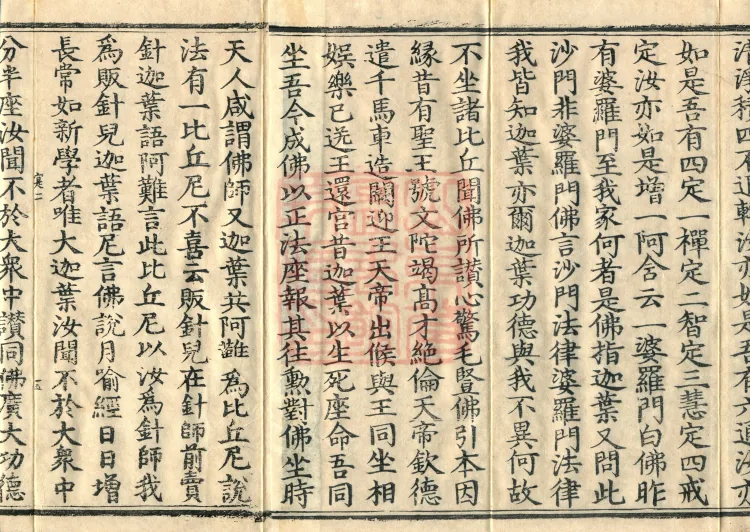 汝亦如是吾有六通汝亦
如是吾有四定一禪定二智定三慧定四戒
定汝亦如是增一阿含云一婆羅門白佛昨
有婆羅門至我家何者是佛指迦葉又問此
沙門非婆羅門佛言沙門法律婆羅門法律
我皆知迦葉亦爾迦葉功德與我不異何故
不坐諸比丘聞佛所讚心驚毛豎佛引本因
緣昔有聖王號文陀竭高才絕倫天帝欽德
遣千馬車造闕迎王天帝出候與王同坐相
娛樂已送王還宮昔迦葉以生死座命吾同
坐吾今成佛以正法座報其往勳對佛坐時
天人咸謂佛師又迦葉共阿難為比丘尼說
法有一比丘尼不喜云販針兒在針師前賣
針迦葉語阿難言此比丘尼以汝為針師我
為販針兒迦葉語尼言佛說月喻經日日增
長常如新學者唯大迦葉汝聞不於大衆中
二 五
分半座汝聞不於大衆中讚同佛廣大功德